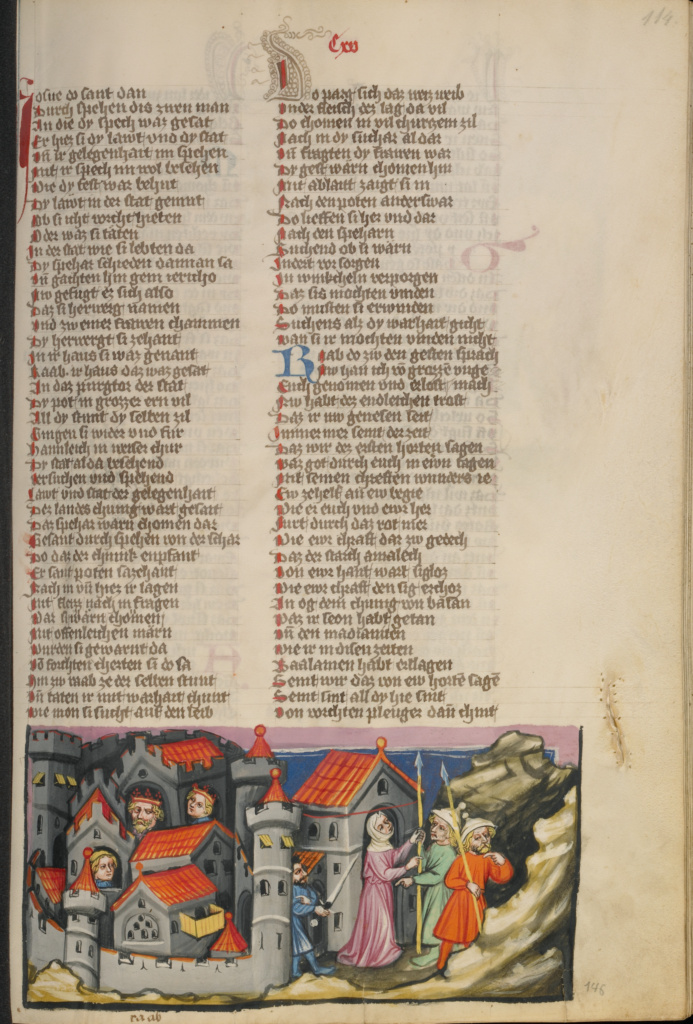 Cxv
114
Josue do sant dan
Durch spehen dis zwen man
In die dy spech waz gesat
Er hiez si dy lawt vnd dy stat
Vnd ir gelegenhait im spehen
Mit ir spech im wol besehen
Wie dy fest waz behut
Dy lawt in der stat gemut
Ob si icht vorcht hieten
Oder waz si taten
In der stat wie si lebten da
Dy spehar schieden dannan sa
Vnd gachten hin gem iericho
Nw gefugt er sich also
Daz si herwerg namen
Vnd zw einer frawen chammen
Dy herwergt si zehant
In ir haus si waz genant
Raab ir haus daz waz gesat
In daz purgtor der stat
Dy pot in grozzer ern vil
All dy stunt dy selben zil
Gingen si wider vnd fur
Haimleich in weiser chur
Dy stat alda besehend
Versuchen vnd spehend
Lawt vnd stat der gelegenhait
Der landes chunig wart gesait
Daz spehar warn chomen dar
Gesant durch spehen von der schar
Do daz der chunik enpfant
Er sant poten sazehant
Nach in vnd hiez ir lagen
Mit fleizz nach in fragen
Daz si warn chomen
Mit offenleichen marn
Wurden si gewarnt da
Vnd forchten cherten si do sa
Hin zw raab ze der selben stunt
Vnd taten ir mit warhait chunt
Wie mon si sucht auf den leib
Do parg sich daz werz weib
Vnder fleisch der lag da vil
Do chomen in vil churczem zil
Nach in dy suchar al dar
Vnd fragten dy frawen war
Dy gest warn chomen hin
Mit ablaitt zaigt si in
Nach den poten anderswar
Do lieffen si her vnd dar
Nach den spehärn
Suchend ob si warn
Indert vor sorgen
In winkcheln verporgen
Daz sis mochten vinden
Do musten si erwinden
Suchens als dy warhait gicht
Wan si ir mochten vinden nicht
Raab do zw den gesten sprach
Nw han ich von grozzer vnge
Euch genomen vnd erlost mach
Nw habt der endleichen trost
Daz ir nw genesen seit
Immer mer semt der zeit
Daz wir dez ersten horten sagen
Waz got durch euch in ewrn tagen
Mit seinen chreften wunders ie
Ew zehelf an ew begie
Wie er euch vnd ewr her
Furt durch daz rot mer
Wie ewr chraft dar zw gedech
Daz der starch amalech
Von ewr hant wart sigloz
Wie ewr chraft den sig erchoz
An og dem chunig von basan
Daz ir seon habt getan
Vnd den madianiten
Wie ir in disen zeiten
Baalamen habt erslagen
Semt wir daz von ew horten sagen
Semt sint all dy hie sint
Von vorchten plewger dan chint
raab
145